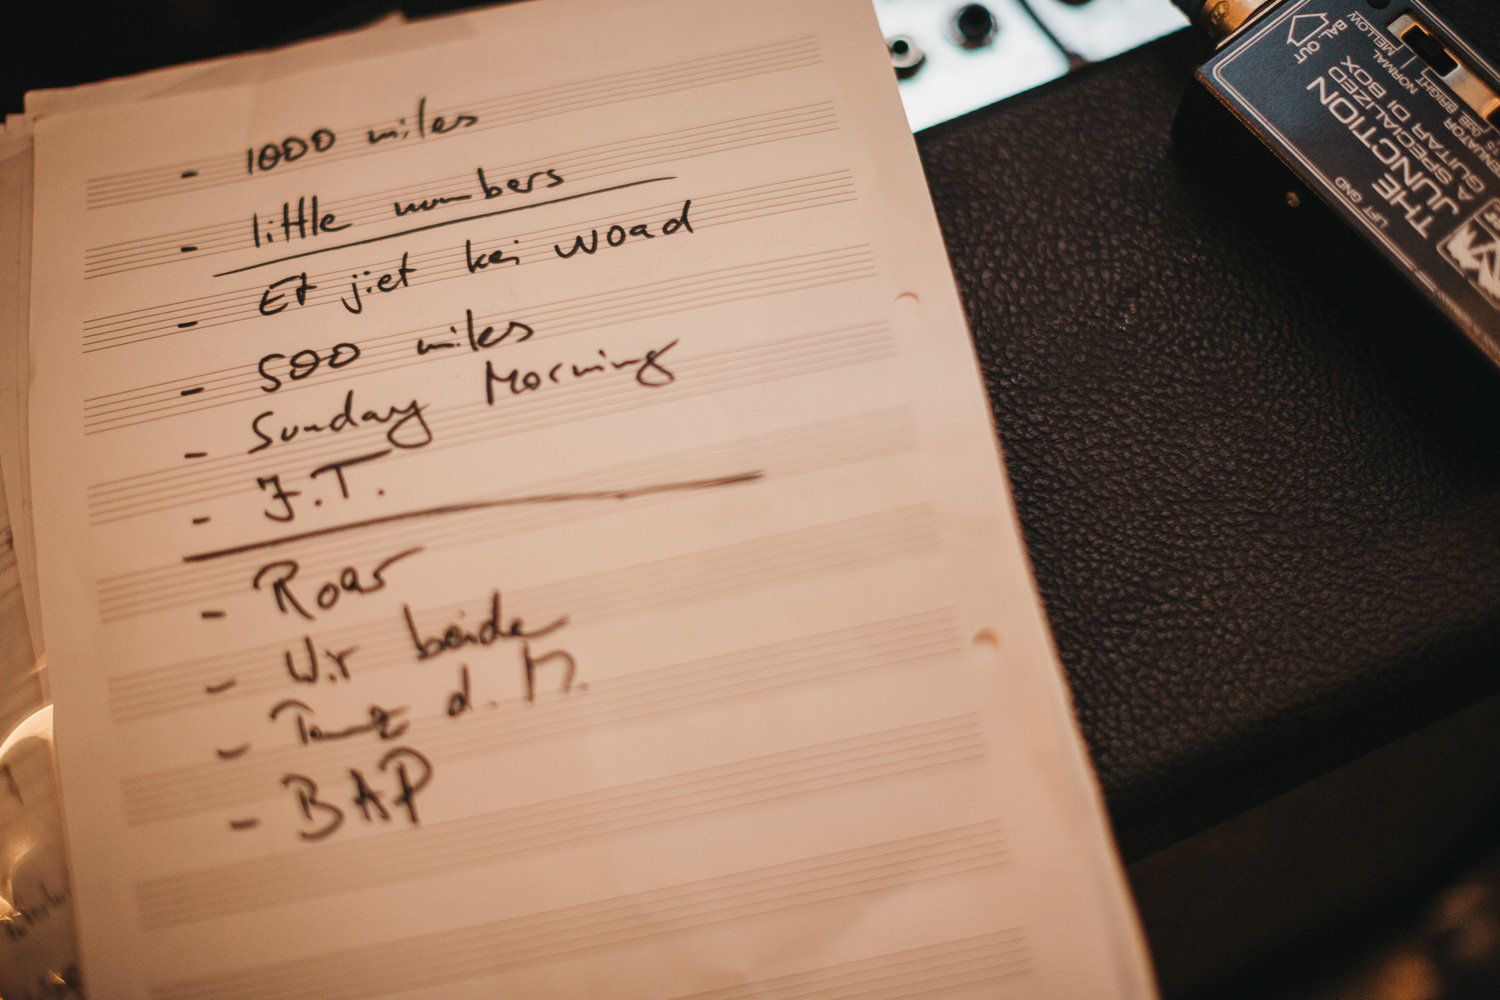 - 1000 miles
- little numbers
- Et jiet kei woad
- 500 miles
- Sunday Morning
- F.T.
- Roar
- Wir beide
- Tanz d. M.
- BAP
OUT
BAL
MELLOW
NORMAL
BRIGHT
THE
JUNCTION
A SPECIALIZED
GUITAR DI BOX
LIFT GND